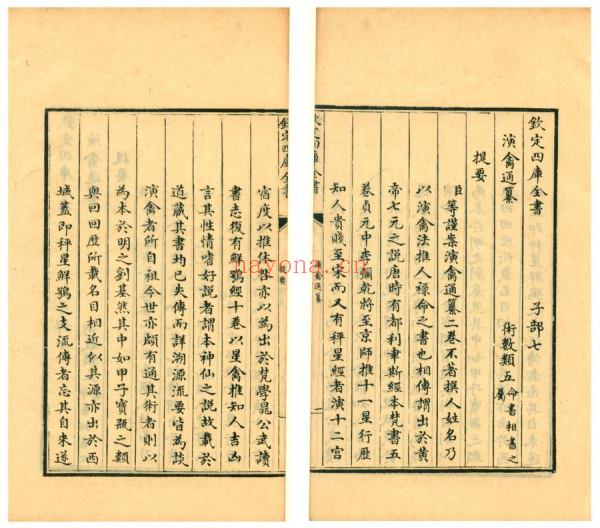 欽定四庫全書　子部七
演禽通纂　術數類五命書相書之屬
提要
臣等謹案演禽通纂二卷不著撰人姓名乃
以演禽法推人祿命之書也相傳謂出於黃
帝七元之說唐時有都利聿斯經本梵書五
卷貞元中李彌乾將至京師推十一星行歷
知人貴賤至宋而又有秤星經者演十二宮
欽定四庫全書
演禽通纂
宿度以推休咎亦以為出於梵學晁公武讀
書志復有鮮鶚經十卷以星禽推知人吉凶
言其性情嗜好說者謂本神仙之說故載於
道藏其書均已失傳而詳溯源流要皆為談
演禽者所自祖今世亦頗有通其術者則以
為本於明之劉基然其中如甲子寶瓶之類
與回回歷所載名目相近似其源亦出於西
域蓋即秤星鮮鶚之支流傳者忘其自来遂
欽定四庫全書
提要
nayona.cn